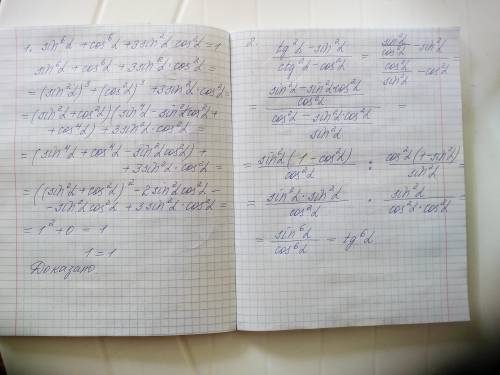 1. sin⁶α + cos⁶α + 3sin²α·cos²α = 1
sin⁶α + cos⁶α + 3sin²α·cos²α =
= (sin²α)³ + (cos²α)³ + 3sin²α·cos²α =
= (sin²α + cos²α)(sin⁴α - sin²αcos²α +
+ cos⁴α) + 3sin²α·cos²α =
= (sin⁴α + cos⁴α - sin²αcos²α) +
+ 3sin²α·cos²α =
= ((sin²α + cos²α)² - 2sin²αcos²α -
- sin²αcos²α + 3sin²α·cos²α =
= 1² + 0 = 1
1 = 1
Доказано
2. (tg²α - sin²α)/(ctg²α - cos²α) = (sin²α/cos²α - sin²α)/(cos²α/sin²α - cos²α) =
= ((sin²α - sin²αcos²α)/cos²α)/((cos²α - sin²α·cos²α)/sin²α) =
= sin²α(1 - cos²α)/cos²α : cos²α(1 - sin²α)/sin²α =
= sin²α·sin²α/cos²α · sin²α/(cos²α·cos²α) =
= sin⁶α/cos⁶α = tg⁶α